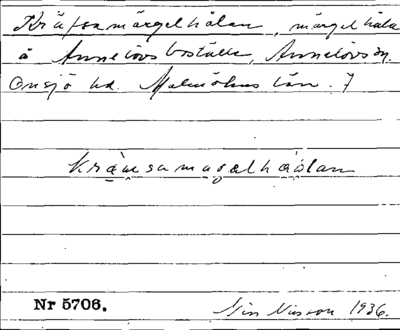 Kräpsamärgelhålan, märgelhåla
å Annelövs boställe, Annelövs sn.
Onsjö hd. Malmöhus län. 7
Kräpsamagelhåolan
Nr 5706.
Nils Nilsson 1936.